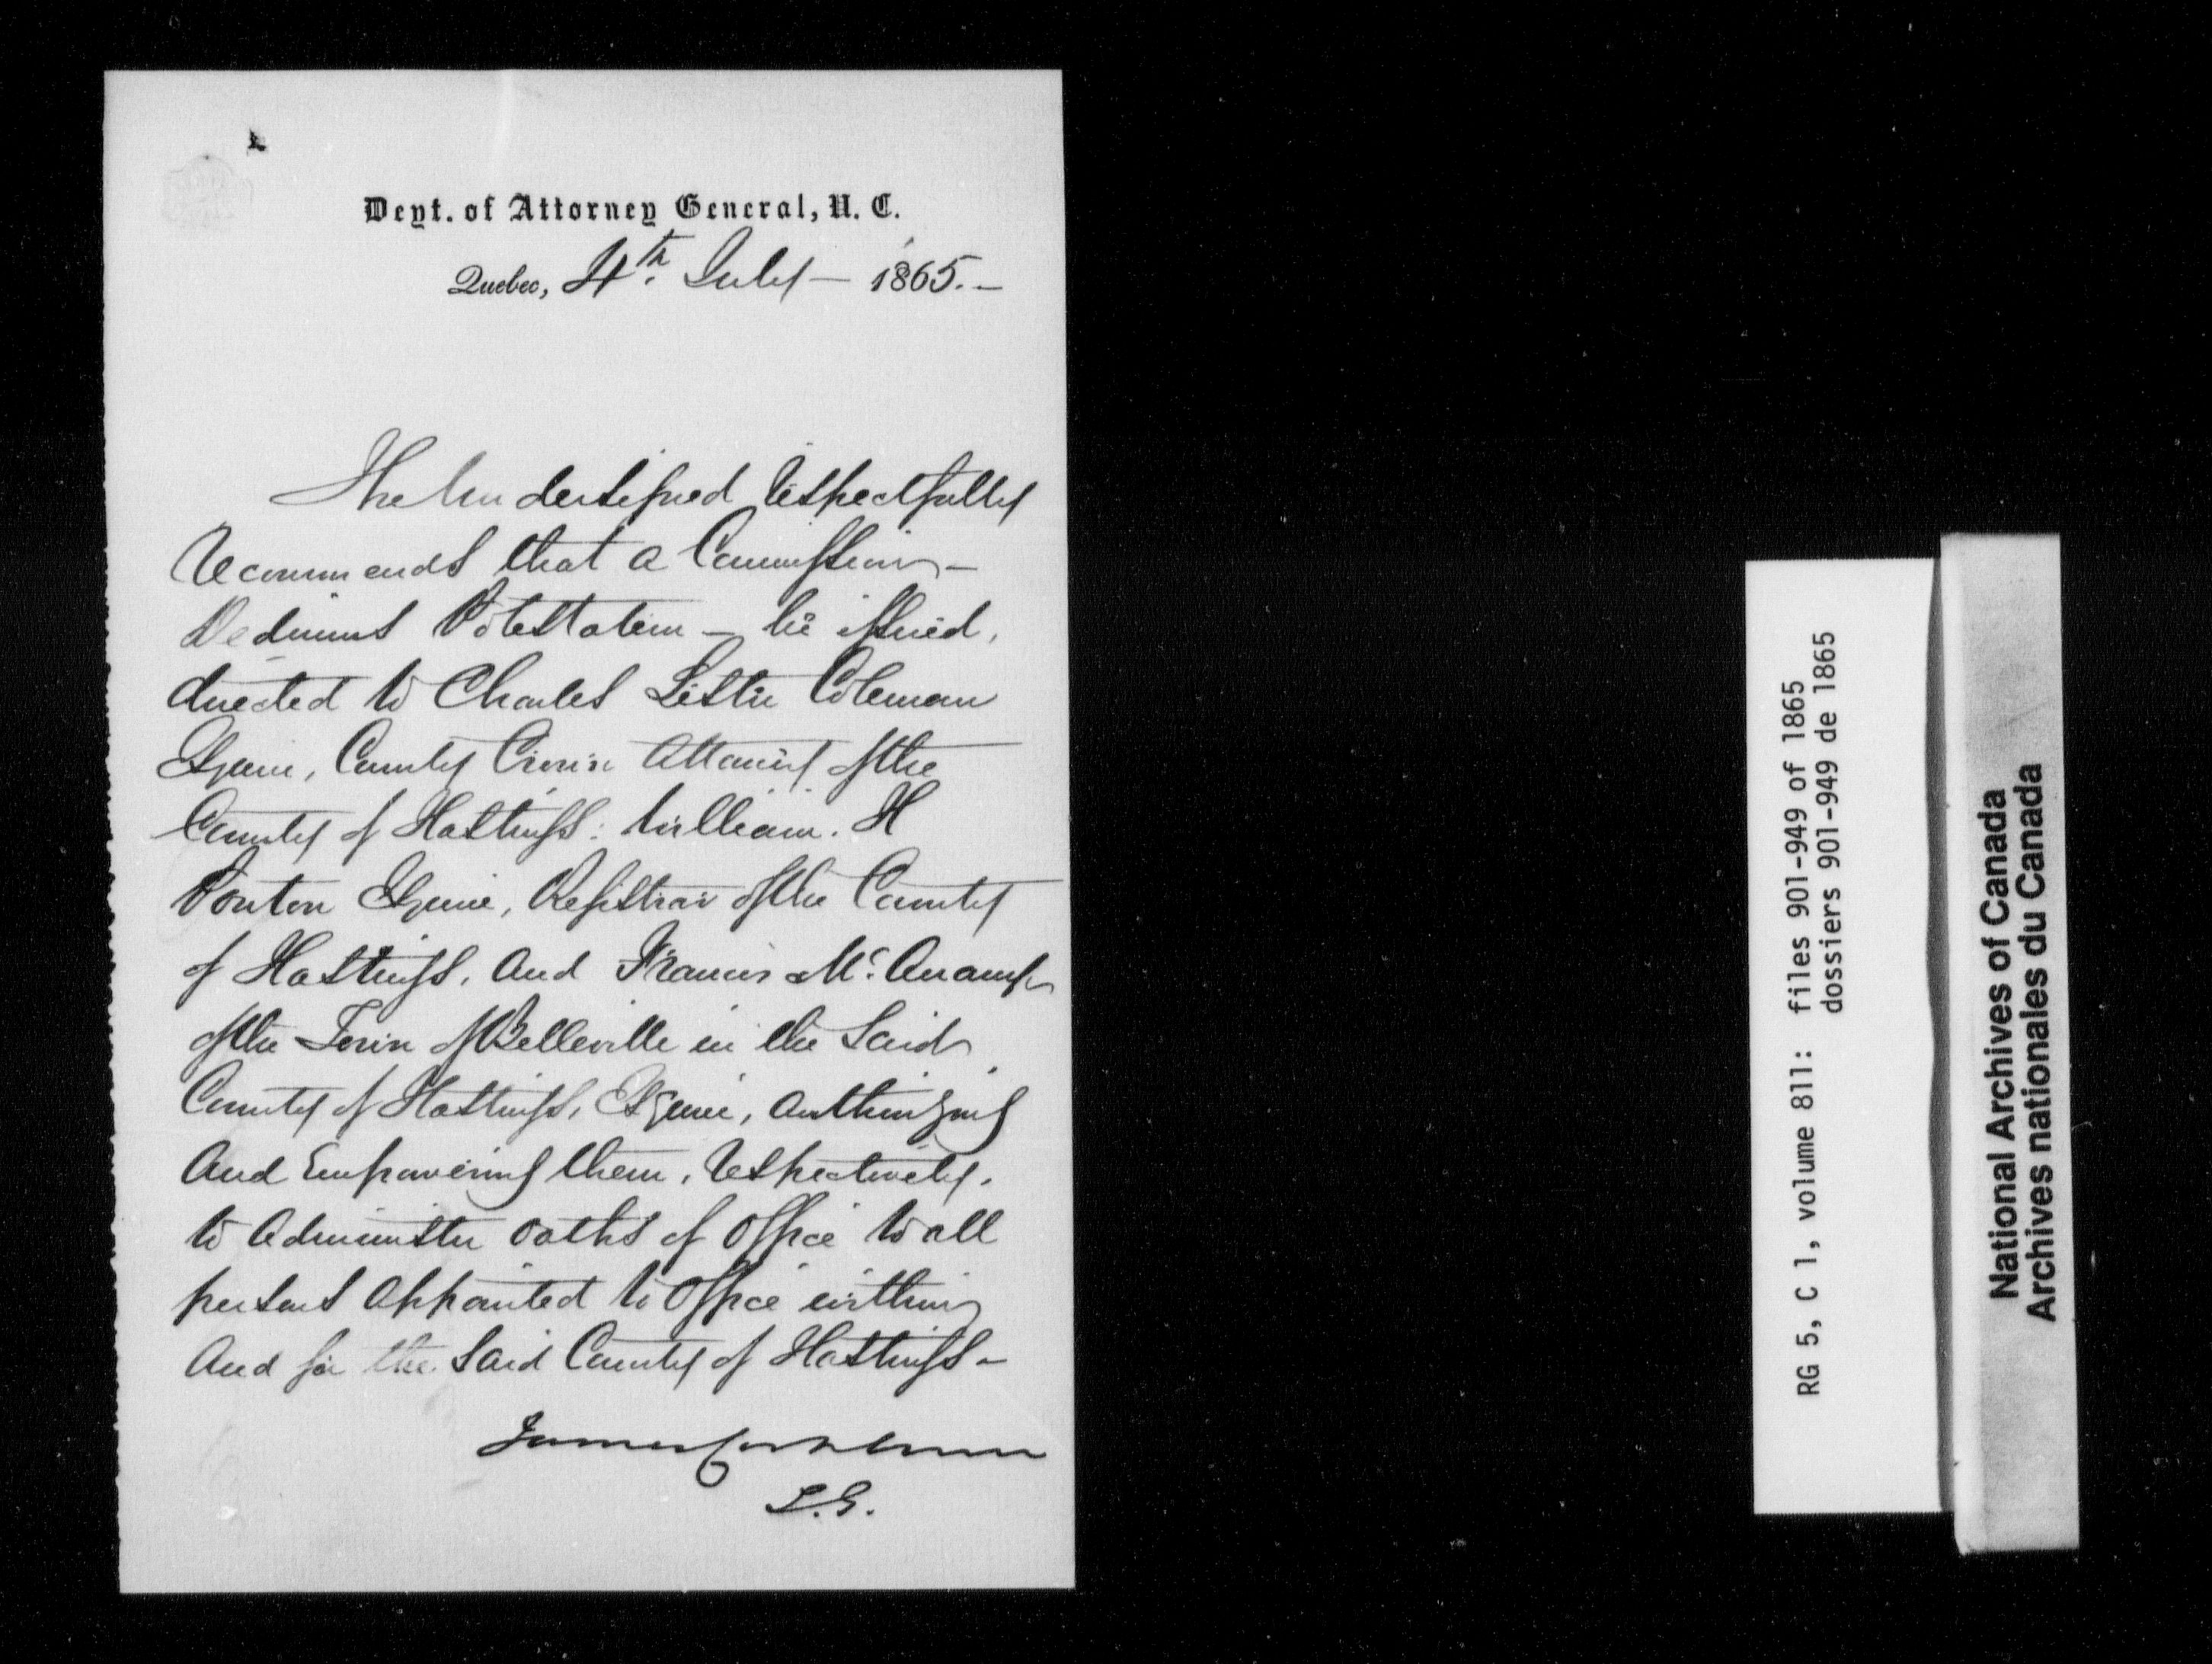 Dept. of Attorney General, U. C.
Quebec, 4th. July — 1865. —
The Undersigned respectfully
recommends that a Commission —
Dedimus Potestatem — be issued,
directed to Charles Leslie Coleman
Esquire, County Crown Attorney of the
County of Hastings: William. H
Ponton Esquire, Registrar of the County
of Hastings, and Francis Mc.
of the Town of Belleville in the Said
County of Hastings, Esquire, authorizing
and Empowering them, respectively,
to administer oaths of office to all
persons appointed to office within
and for the Said County of Hastings —
James Cockburn
S.G.
RG 5, C 1, volume 811: files 901-949 of 1865
dossiers 901-949 de 1865
National Archives of Canada
Archives nationales du Canada